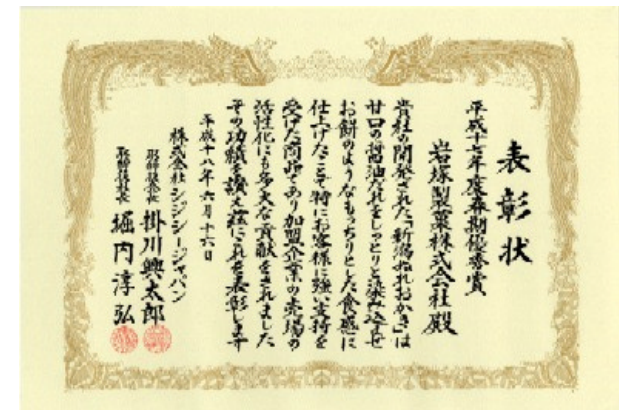 表彰状
平成十七年度春期優秀賞
岩塚製菓株式会社殿
貴社の開発された「新潟ぬれおかき」は
甘口の醤油だれをしっとりと染み込ませ
お餅のようなもっちりとした食感に
仕上げたことで特にお客様に強い支持を
受けた商品であり加盟企業の売場の
活性化にも多大な貢献をされました
その功績を讃え茲にこれを表彰します
平成十八年六月十六日
株式会社シジシージャパン
取締役会長 掛川興太郎
取締役社長 堀内淳弘